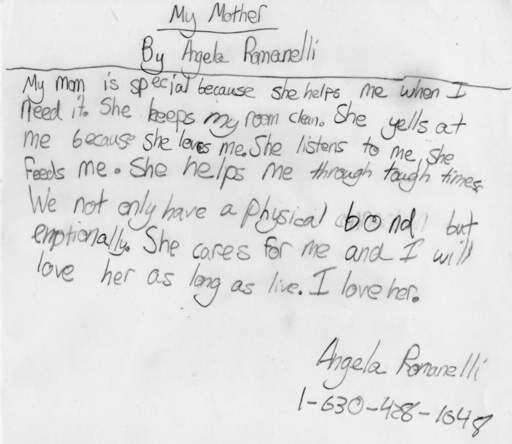 My Mother
By Angela Romanelli
My mom is special because she helps me when I
need it. She keeps my room clean. She yells at
me because she loves me. She listens to me, She
feeds me. She helps me through tough times.
We not only have a physical bond but
emptionally. She cares for me and I will
love her as long as live. I love her.
Angela Romanelli
1-630-428-1048